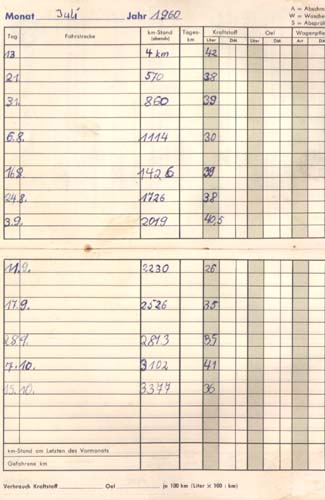 Monat Juli Jahr 1960
A = Abschm
W = Wäsche
S = Absprü
Tag Fahrstrecke km-Stand (abends) Tages-km Kraftstoff Oel Wagenpfle
Liter DM Liter DM Art DM
13 4 km 42
21 570 38
31. 860 39
6.8. 1114 30
16.8. 1426 39
24.8. 1726 38
3.9. 2019 40,5
11.9. 2230 26
17.9. 2526 35
28.9. 2813 35
7.10. 3102 41
15.10. 3377 36
km-Stand am Letzten des Vormonats
Gefahrene km
Verbrauch Kraftstoff Oel je 100 km (Liter × 100 : km)